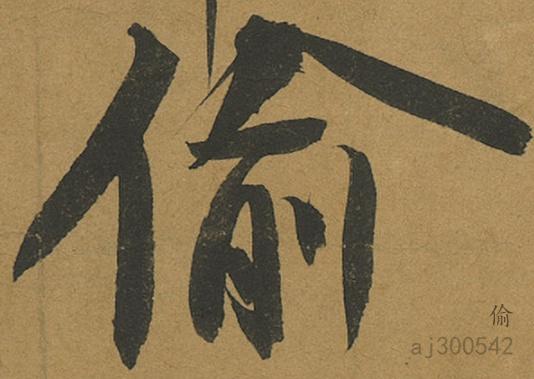 偷
偷
aj300542